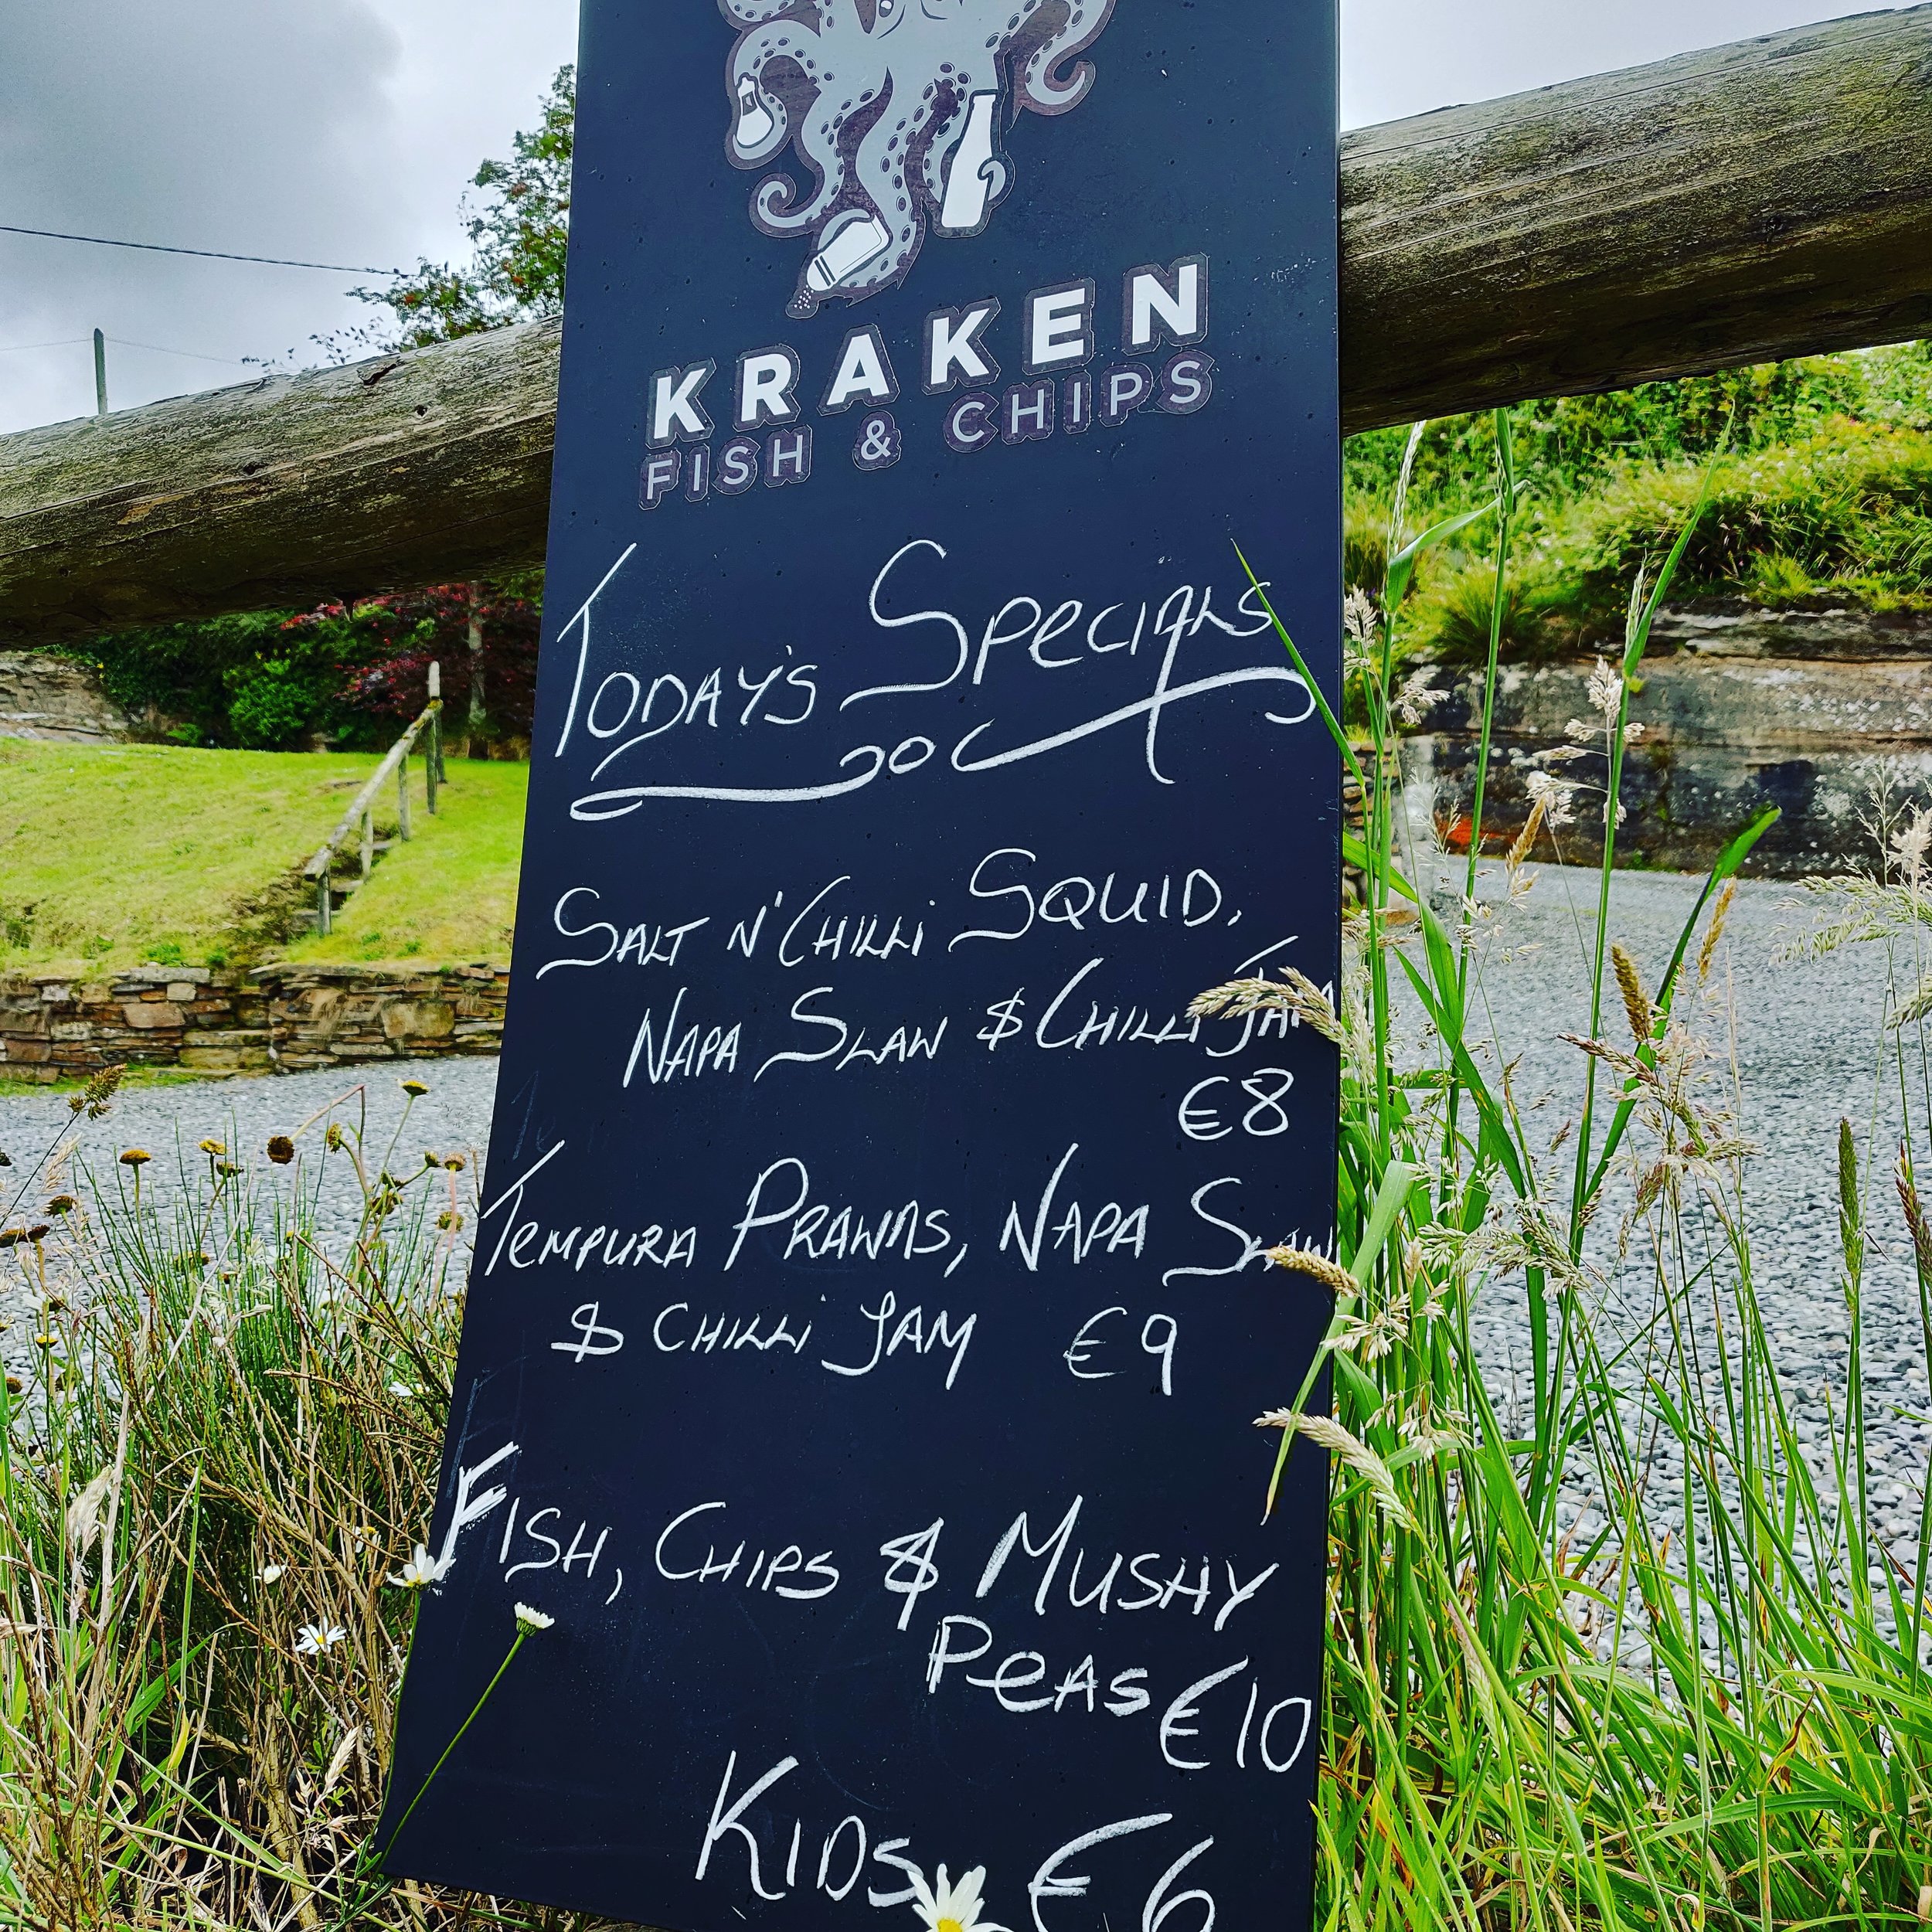 KRAKEN
FISH & CHIPS
TODAY'S SPECIALS
SALT N' CHILLI SQUID,
NAPA SLAW & CHILLI JAM
€8
TEMPURA PRAWNS, NAPA SLAW
& CHILLI JAM €9
FISH, CHIPS & MUSHY
PEAS €10
KIDS €6